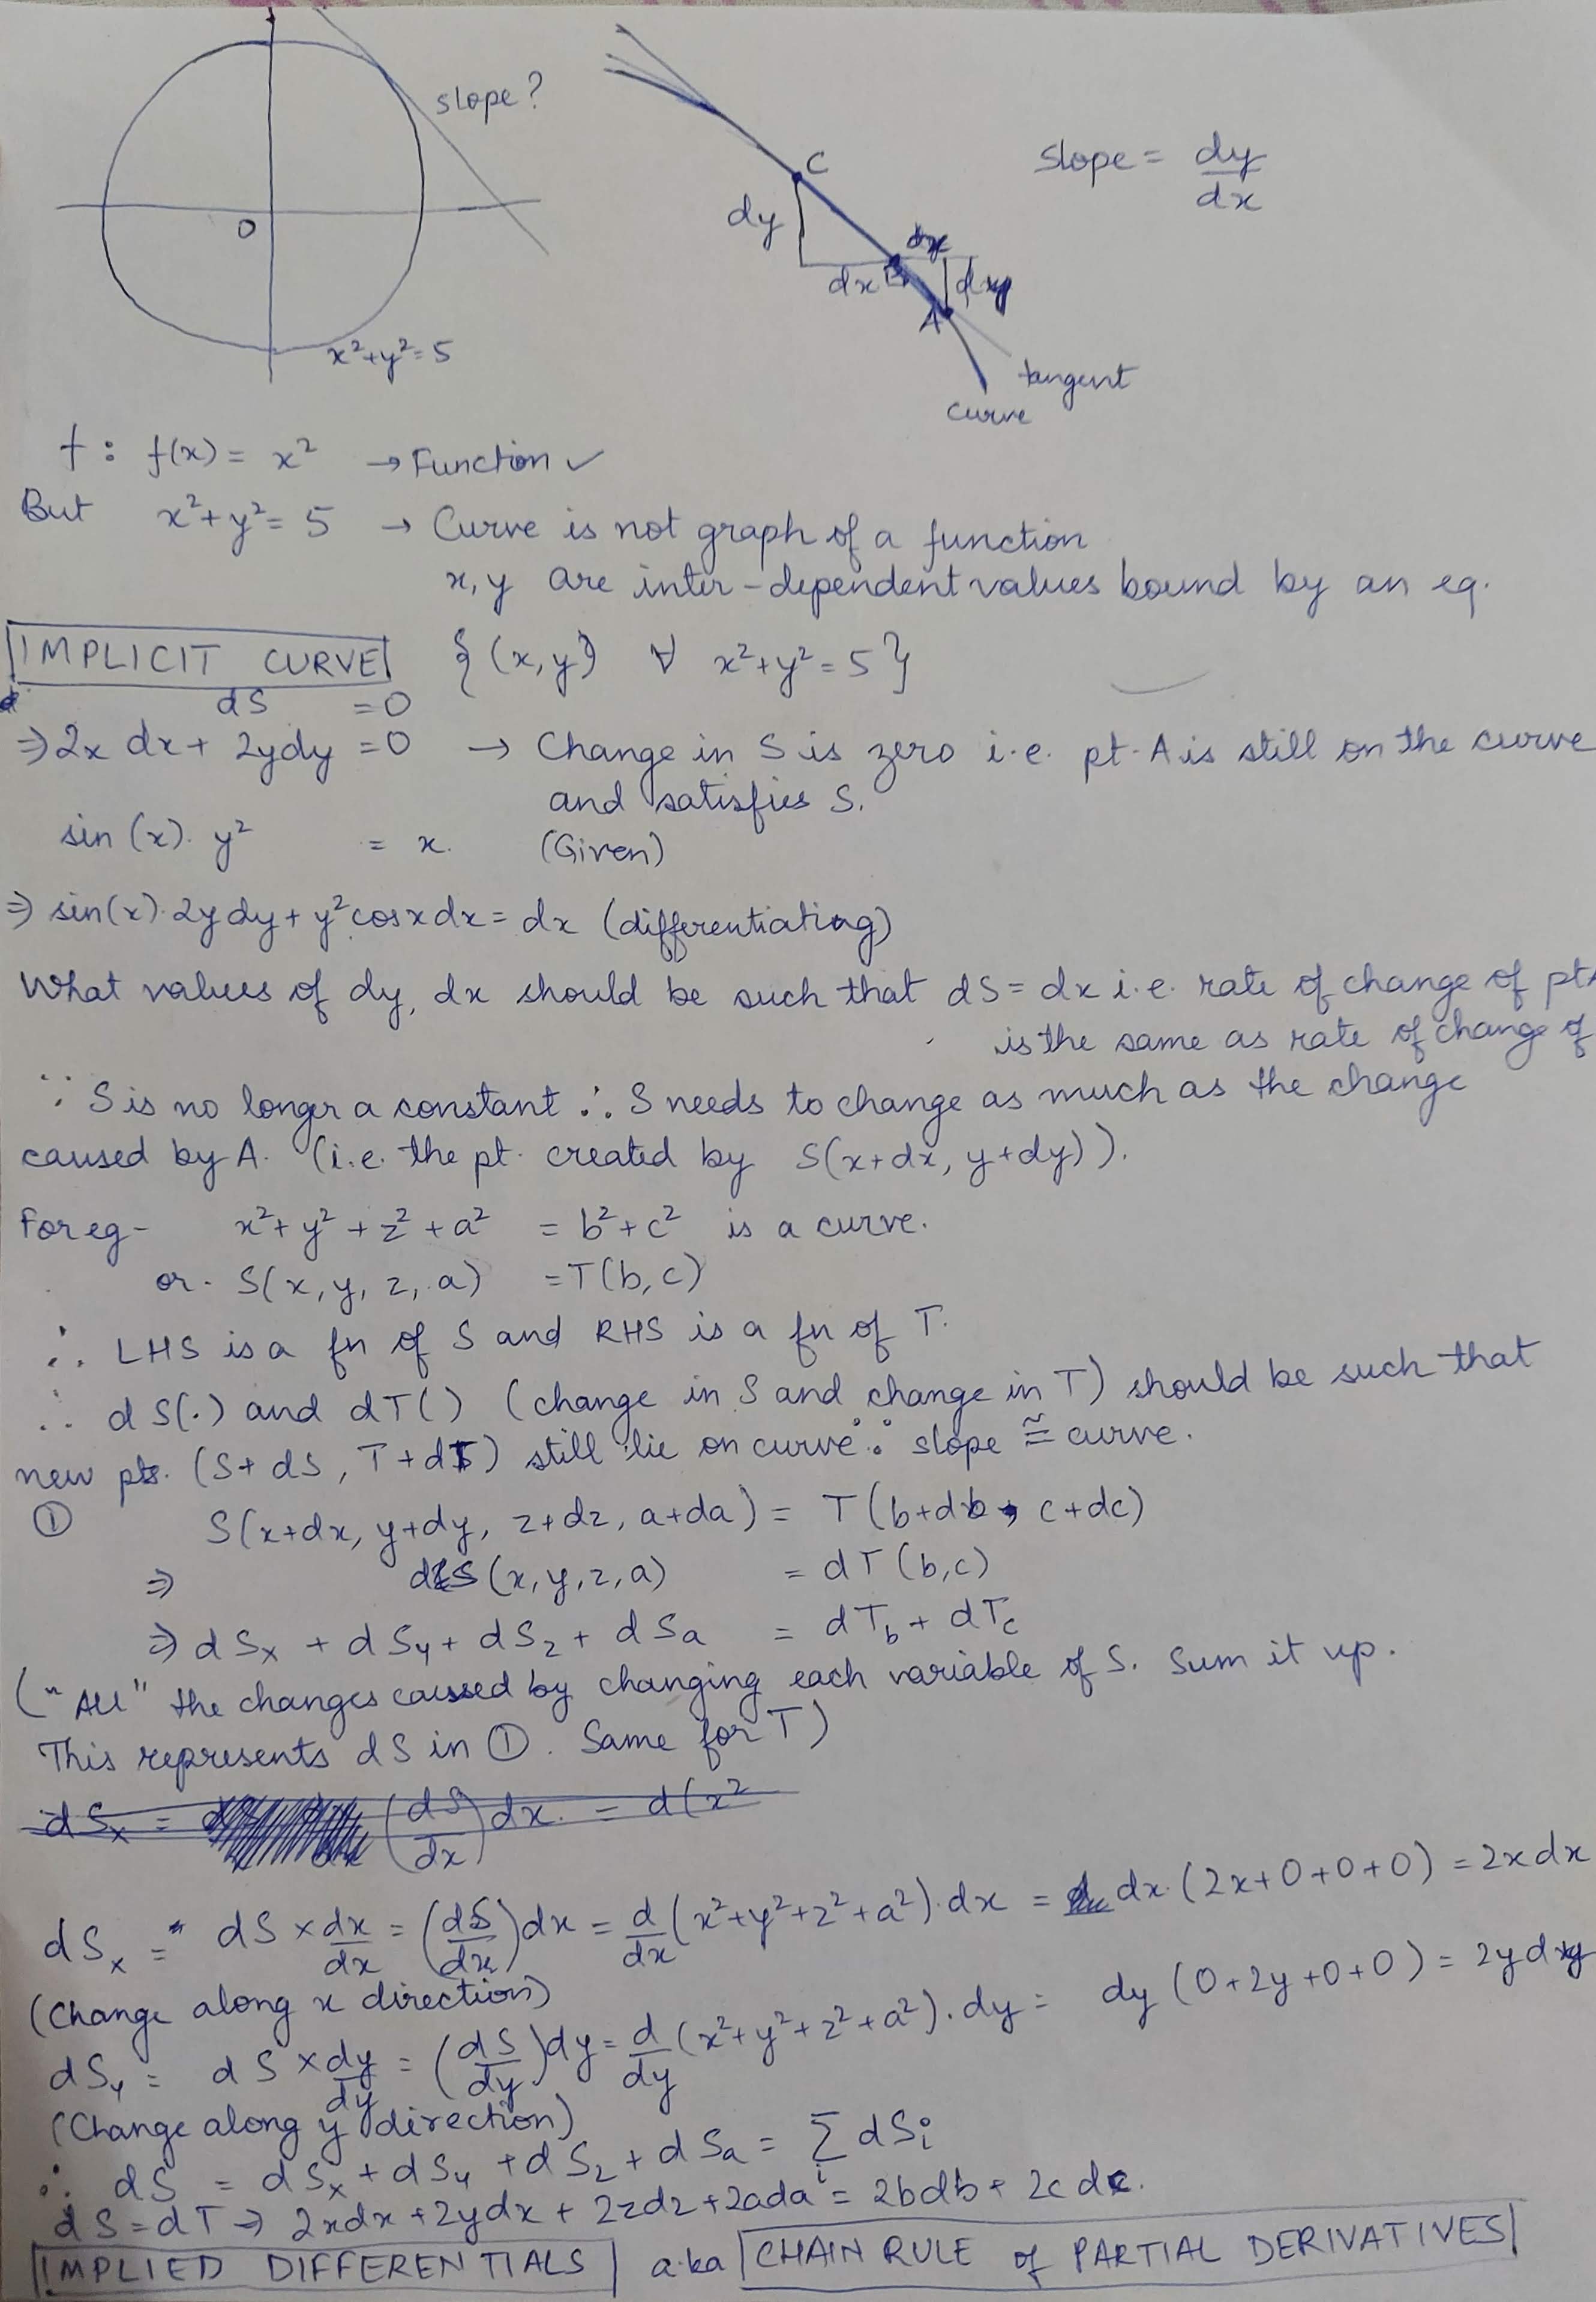 slope?
C
slope = dy/dx
dy
dx
dx
B
dy
A
O
x²+y²=5
tangent
curve
f : f(x) = x² → Function ✓
But x²+y²= 5 → Curve is not graph of a function
x, y are inter-dependent values bound by an eq.
IMPLICIT CURVE {(x,y) ∀ x²+y²=5}
dS =0
⇒2x dx+ 2ydy =0 → Change in S is zero i.e. pt. A is still on the curve
and satisfies S.
sin (x). y² = x. (Given)
⇒ sin(x).2ydy+ y²cosxdx= dx (differentiating)
What values of dy, dx should be such that dS= dx i.e. rate of change of pt
is the same as rate of change of
∵ S is no longer a constant ∴ S needs to change as much as the change
caused by A. (i.e. the pt. created by S(x+dx, y+dy)).
For eg- x²+ y² + z² + a² = b²+c² is a curve.
or. S(x, y, z, a) =T(b,c)
∴ LHS is a fn of S and RHS is a fn of T.
∴ dS(.) and dT() (change in S and change in T) should be such that
new pts. (S+dS, T+dT) still lie on curve ∵ slope ≅ curve.
① S(x+dx, y+dy, z+dz, a+da) = T(b+db, c+dc)
⇒ dS(x,y,z,a) = dT(b,c)
⇒ dSx + dSy + dSz + dSa = dTb + dTc
("All" the changes caused by changing each variable of S. Sum it up.
This represents dS in ①. Same for T)
dSx = (dS/dx)dx. = d(x²
dSx = dS × dx/dx = (dS/dx)dx = d/dx (x²+y²+z²+a²).dx = dx.(2x+0+0+0) = 2xdx
(Change along x direction)
dSy = dS × dy/dy = (dS/dy)dy = d/dy (x²+y²+z²+a²).dy = dy (0+2y+0+0) = 2ydy
(Change along y direction)
∴ dS = dSx + dSy + dSz + dSa = Σi dSi
dS=dT ⇒ 2xdx+2ydx+ 2zdz+2ada = 2bdb+ 2cdc.
IMPLIED DIFFERENTIALS a.k.a CHAIN RULE of PARTIAL DERIVATIVES